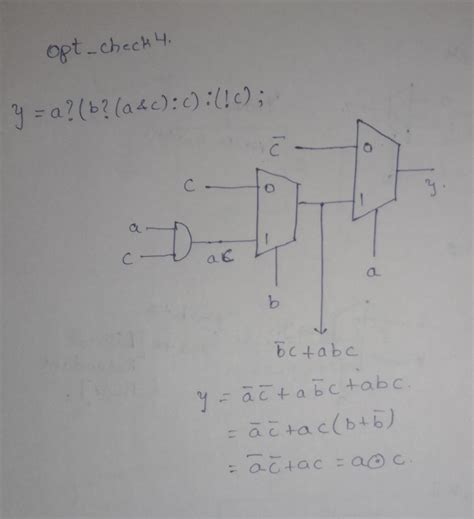 opt_check4.
y = a?(b?(a&c):c):(!c);
c̅
0
y
1
a
c
0
a
c
ac
1
b
b̅c+abc
y = a̅c̅+ab̅c+abc.
= a̅c̅+ac(b+b̅)
= a̅c̅+ac = a⊙c.